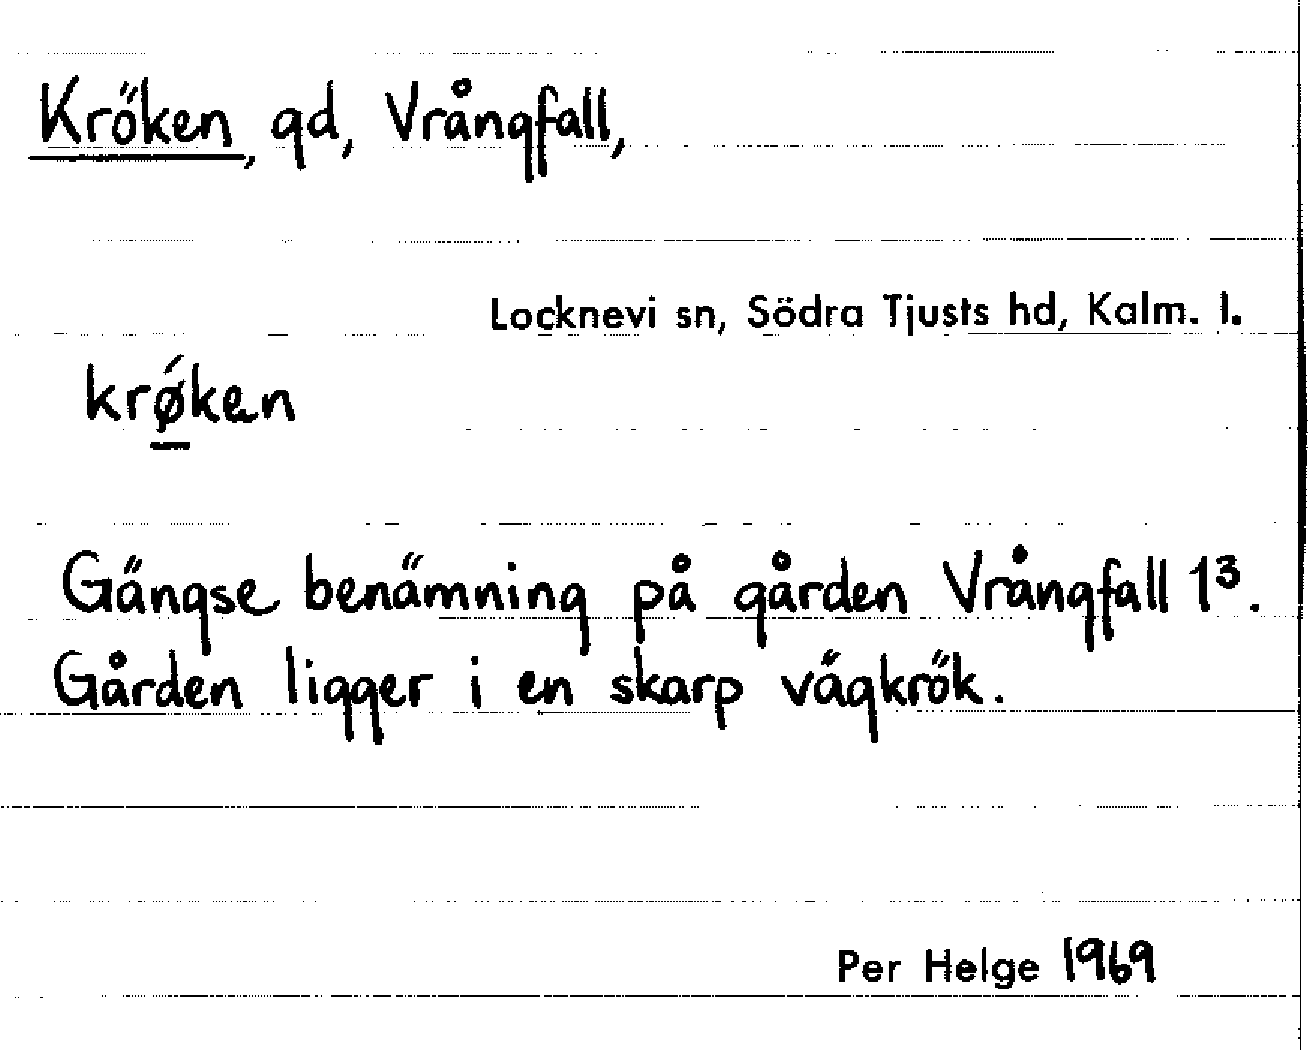 Kröken, gd, Vrångfall,
Locknevi sn, Södra Tjusts hd, Kalm. l.
krǿ̱ken
Gängse benämning på gården Vrångfall 1³.
Gården ligger i en skarp vägkrök.
Per Helge 1969